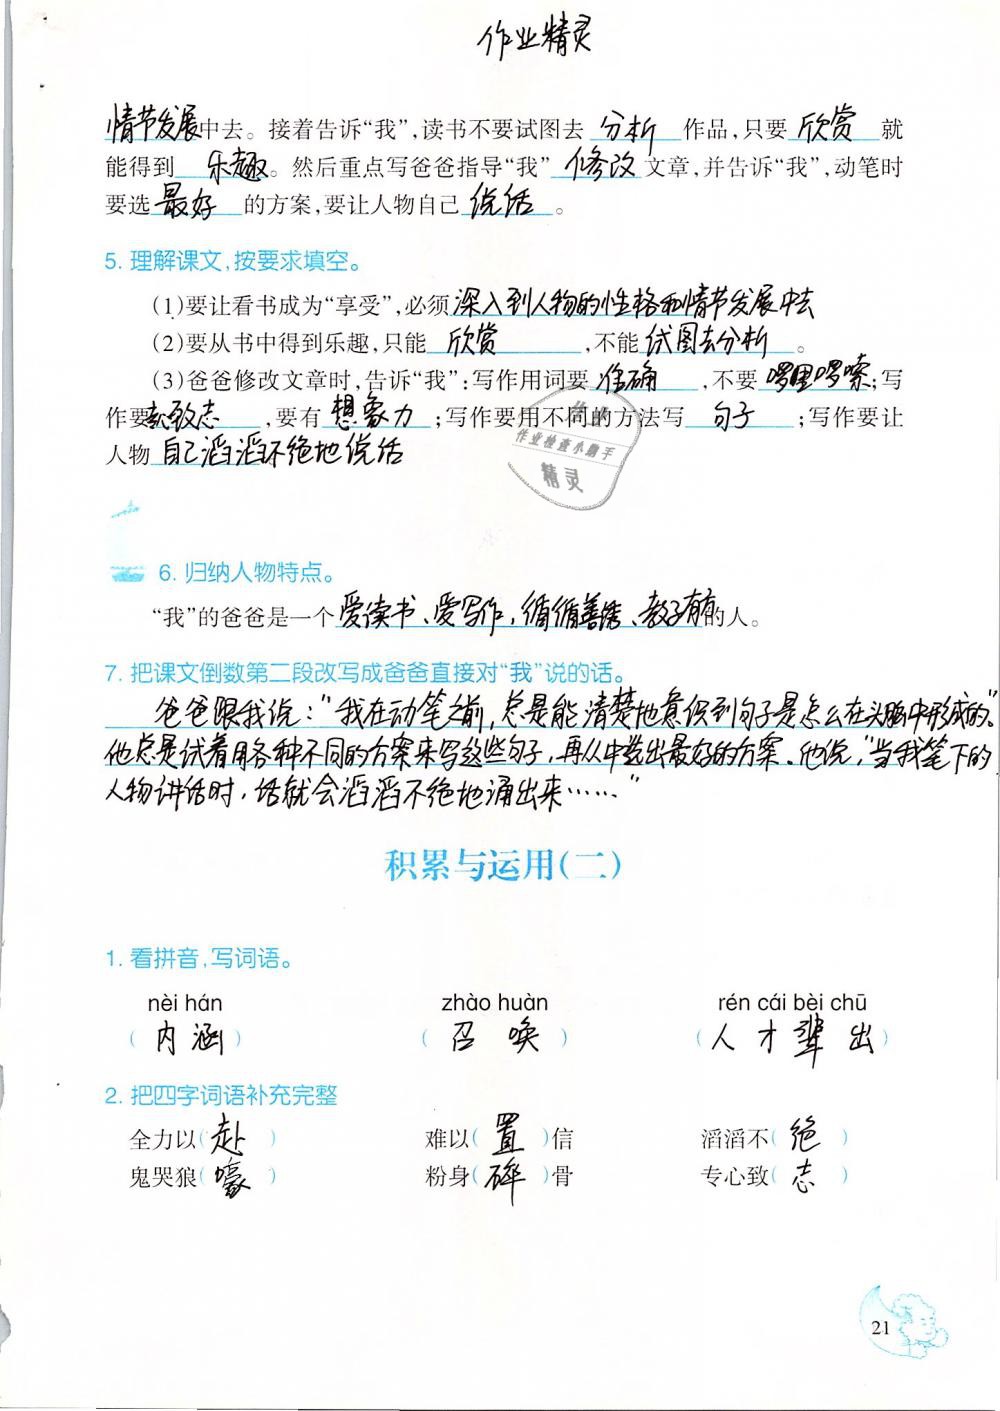 作业精灵
情节发展中去。接着告诉“我”,读书不要试图去 分析 作品,只要 欣赏 就
能得到 乐趣。然后重点写爸爸指导“我” 修改 文章,并告诉“我”,动笔时
要选 最好 的方案,要让人物自己 说话 。
5. 理解课文,按要求填空。
(1)要让看书成为“享受”,必须 深入到人物的性格和情节发展中去
(2)要从书中得到乐趣,只能 欣赏 ,不能 试图去分析 。
(3)爸爸修改文章时,告诉“我”:写作用词要 准确 ,不要 啰里啰嗦;写
作要 致志 ,要有 想象力 ;写作要用不同的方法写 句子 ;写作要让
人物 自己滔滔不绝地说话
作业检查小助手
精灵
6. 归纳人物特点。
“我”的爸爸是一个 爱读书、爱写作,循循善诱、教子有方 的人。
7. 把课文倒数第二段改写成爸爸直接对“我”说的话。
爸爸跟我说:“我在动笔之前,总是能清楚地意识到句子是怎么在头脑中形成的。
他总是试着用各种不同的方案来写这些句子,再从中选出最好的方案。他说,“当我笔下的
人物讲话时,话就会滔滔不绝地涌出来……”
积累与运用(二)
1. 看拼音,写词语。
nèi hán zhào huàn rén cái bèi chū
( 内 涵 ) ( 召 唤 ) ( 人 才 辈 出 )
2. 把四字词语补充完整
全力以( 赴 ) 难以( 置 )信 滔滔不( 绝 )
鬼哭狼( 嚎 ) 粉身( 碎 )骨 专心致( 志 )
21